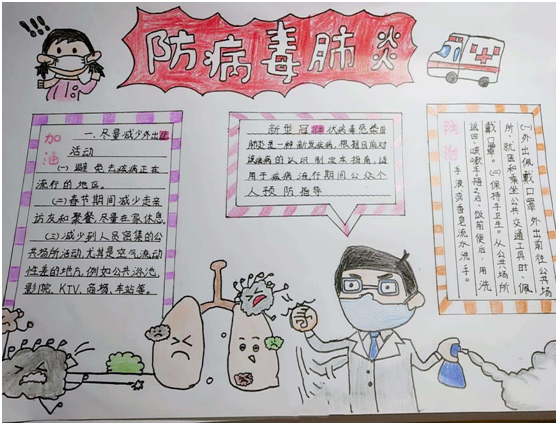 防病毒肺炎
加油
一、尽量减少外出
活动
(一)避免去疾病正在
流行的地区。
(二)春节期间减少走亲
访友和聚餐,尽量在家休息
(三)减少到人员密集的公
共场所活动,尤其是空气流动
性差的地方,例如公共浴池
影院、KTV、商场、车站等。
新型冠状病毒感染的
肺炎是一种新发疾病,根据目前对
该疾病的认识,制定本指南,适
用于疾病流行期间公众个
人预防指导
防治
(一)外出佩戴口罩 外出前往公共场
所、就医和乘坐公共交通工具时,佩
戴口罩。(二)保持手卫生。从公共场所
返回、咳嗽手捂之后、饭前便后,用洗
手液或香皂流水洗手。